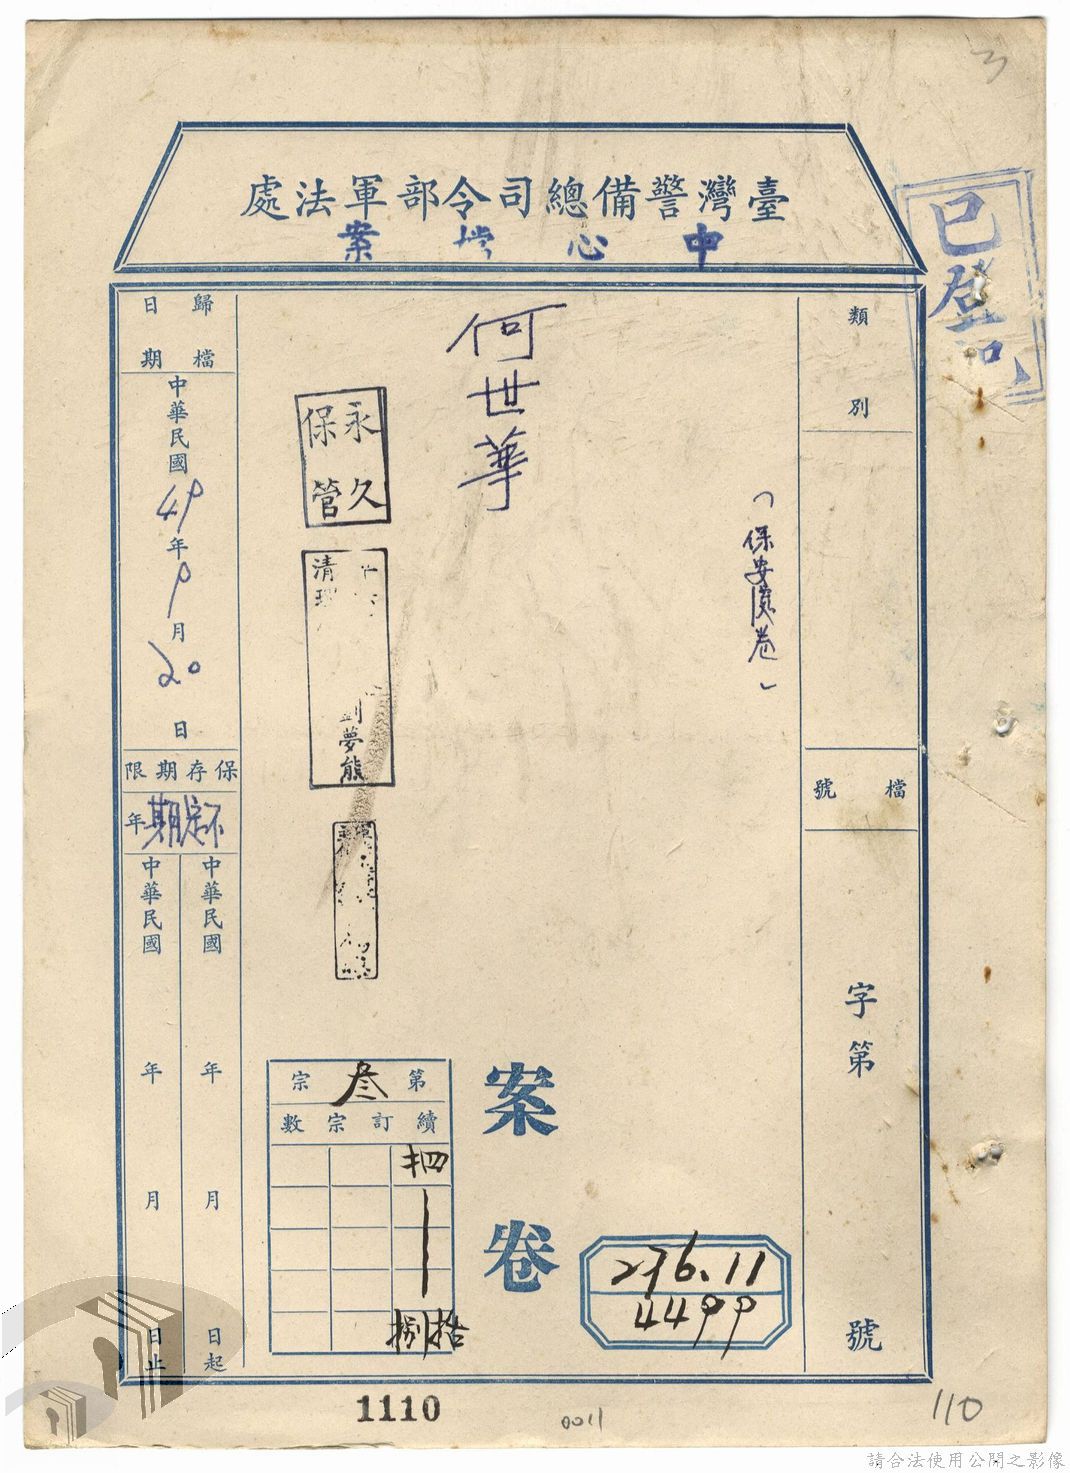 3
臺灣警備總司令部軍法處
中心檔案
已登記
類別
檔號
字第
號
(保安處卷)
何世華
案卷
276.11
4499
永久保管
清理
劉夢熊
第叁宗
續訂宗數
肆
拾捌
歸檔日期
中華民國49年9月20日
保存期限
不定期年
中華民國 年 月 日起
中華民國 年 月 日止
1110
0011
110
請合法使用公開之影像